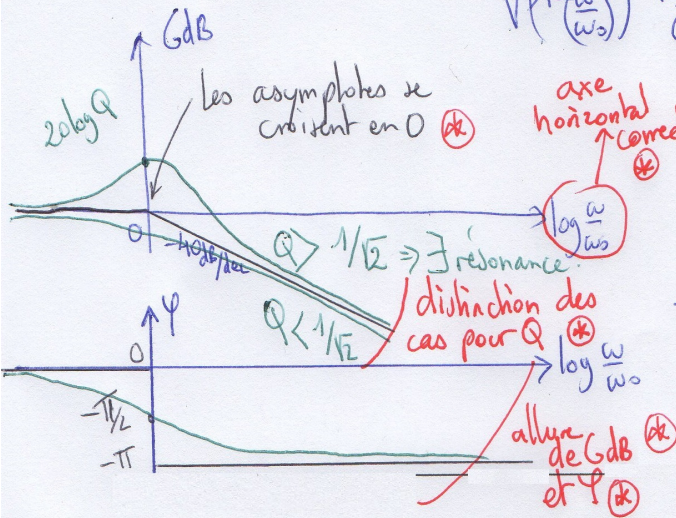 GdB
√(1-(ω/ω₀))
20logQ
Les asymptotes se
croisent en O *
axe
horizontal
correc
*
log ω/ω₀
0
-40dB/dec
Q > 1/√2 ⇒ ∃ résonance.
Q < 1/√2
distinction des
cas pour Q *
φ
0
log ω/ω₀
-π/2
-π
allure
de GdB *
et φ *